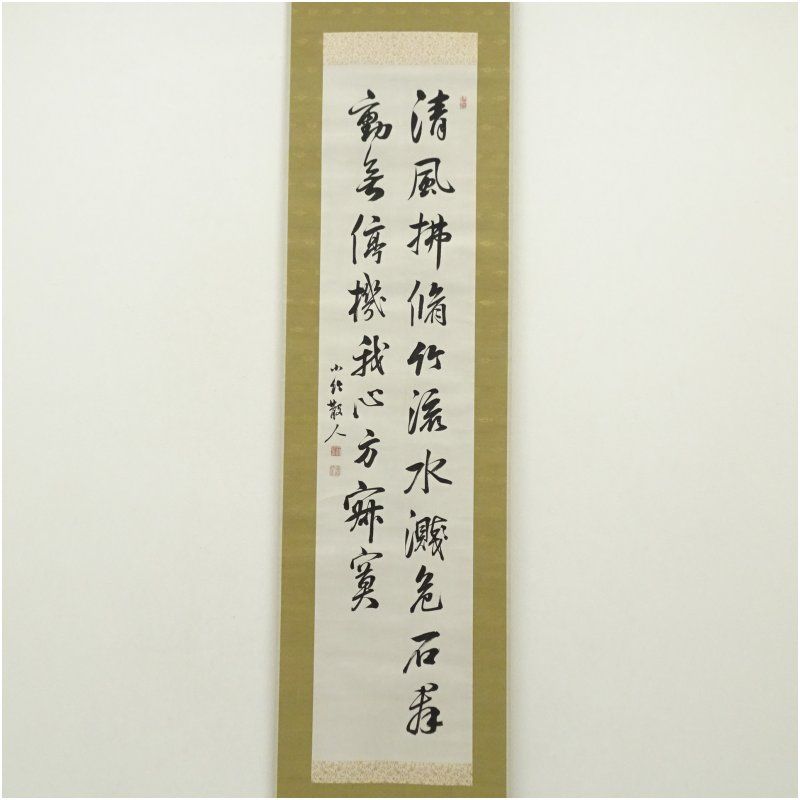 清風拂脩竹流水濺危石群
動無停機我心方寂寞
小竹散人